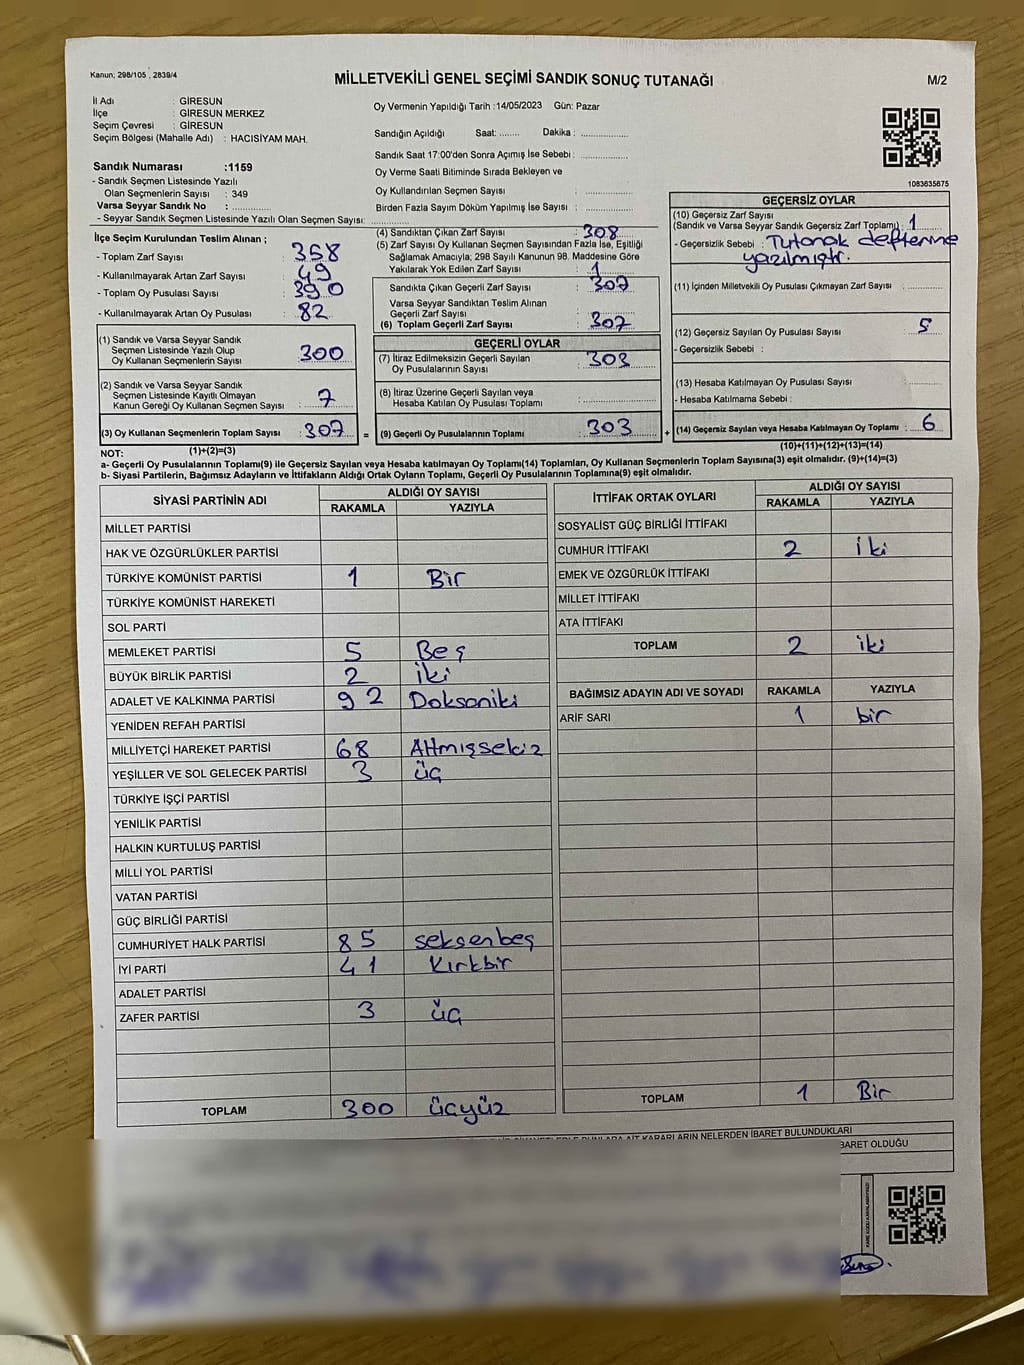 Kanun; 298/105 , 2839/4
MİLLETVEKİLİ GENEL SEÇİMİ SANDIK SONUÇ TUTANAĞI
M/2
İl Adı : GİRESUN
İlçe : GİRESUN MERKEZ
Seçim Çevresi : GİRESUN
Seçim Bölgesi (Mahalle Adı) : HACISİYAM MAH.
Oy Vermenin Yapıldığı Tarih :14/05/2023 Gün: Pazar
Sandığın Açıldığı Saat: ........ Dakika : ................
Sandık Saat 17:00'den Sonra Açımış İse Sebebi : ................
Oy Verme Saati Bitiminde Sırada Bekleyen ve
Oy Kullandırılan Seçmen Sayısı : ................
Birden Fazla Sayım Döküm Yapılmış İse Sayısı : ................
Sandık Numarası :1159
- Sandık Seçmen Listesinde Yazılı
Olan Seçmenlerin Sayısı : 349
Varsa Seyyar Sandık No : ................
- Seyyar Sandık Seçmen Listesinde Yazılı Olan Seçmen Sayısı: ................
1083635675
İlçe Seçim Kurulundan Teslim Alınan ;
- Toplam Zarf Sayısı : 358
- Kullanılmayarak Artan Zarf Sayısı : 49
- Toplam Oy Pusulası Sayısı : 390
- Kullanılmayarak Artan Oy Pusulası : 82
(1) Sandık ve Varsa Seyyar Sandık
Seçmen Listesinde Yazılı Olup
Oy Kullanan Seçmenlerin Sayısı : 300
(2) Sandık ve Varsa Seyyar Sandık
Seçmen Listesinde Kayıtlı Olmayan
Kanun Gereği Oy Kullanan Seçmen Sayısı : 7
(3) Oy Kullanan Seçmenlerin Toplam Sayısı : 307
(1)+(2)=(3)
(4) Sandıktan Çıkan Zarf Sayısı : 308
(5) Zarf Sayısı Oy Kullanan Seçmen Sayısından Fazla İse, Eşitliği
Sağlamak Amacıyla; 298 Sayılı Kanunun 98. Maddesine Göre
Yakılarak Yok Edilen Zarf Sayısı : 1
Sandıkta Çıkan Geçerli Zarf Sayısı : 307
Varsa Seyyar Sandıktan Teslim Alınan
Geçerli Zarf Sayısı : ................
(6) Toplam Geçerli Zarf Sayısı : 307
GEÇERLİ OYLAR
(7) İtiraz Edilmeksizin Geçerli Sayılan
Oy Pusulalarının Sayısı : 303
(8) İtiraz Üzerine Geçerli Sayılan veya
Hesaba Katılan Oy Pusulası Toplamı : ................
= (9) Geçerli Oy Pusulalarının Toplamı : 303 +
GEÇERSİZ OYLAR
(10) Geçersiz Zarf Sayısı
(Sandık ve Varsa Seyyar Sandık Geçersiz Zarf Toplamı) : 1
- Geçersizlik Sebebi : Tutanak defterine
yazılmıştır.
(11) İçinden Milletvekili Oy Pusulası Çıkmayan Zarf Sayısı : ................
(12) Geçersiz Sayılan Oy Pusulası Sayısı : 5
- Geçersizlik Sebebi :
(13) Hesaba Katılmayan Oy Pusulası Sayısı : ................
- Hesaba Katılmama Sebebi :
(14) Geçersiz Sayılan veya Hesaba Katılmayan Oy Toplamı : 6
(10)+(11)+(12)+(13)=(14)
NOT:
a- Geçerli Oy Pusulasının Toplamı(9) ile Geçersiz Sayılan veya Hesaba katılmayan Oy Toplamı(14) Toplamları, Oy Kullanan Seçmenlerin Toplam Sayısına(3) eşit olmalıdır. (9)+(14)=(3)
b- Siyasi Partilerin, Bağımsız Adayların ve İttifakların Aldığı Ortak Oyların Toplamı, Geçerli Oy Pusulalarının Toplamına(9) eşit olmalıdır.
SİYASİ PARTİNİN ADI ALDIĞI OY SAYISI
RAKAMLA YAZIYLA
MİLLET PARTİSİ
HAK VE ÖZGÜRLÜKLER PARTİSİ
TÜRKİYE KOMÜNİST PARTİSİ 1 Bir
TÜRKİYE KOMÜNİST HAREKETİ
SOL PARTİ
MEMLEKET PARTİSİ 5 Beş
BÜYÜK BİRLİK PARTİSİ 2 İki
ADALET VE KALKINMA PARTİSİ 92 Doksaniki
YENİDEN REFAH PARTİSİ
MİLLİYETÇİ HAREKET PARTİSİ 68 Altmışsekiz
YEŞİLLER VE SOL GELECEK PARTİSİ 3 üç
TÜRKİYE İŞÇİ PARTİSİ
YENİLİK PARTİSİ
HALKIN KURTULUŞ PARTİSİ
MİLLİ YOL PARTİSİ
VATAN PARTİSİ
GÜÇ BİRLİĞİ PARTİSİ
CUMHURİYET HALK PARTİSİ 85 seksenbeş
İYİ PARTİ 41 Kırkbir
ADALET PARTİSİ
ZAFER PARTİSİ 3 üç
TOPLAM 300 üçyüz
İTTİFAK ORTAK OYLARI ALDIĞI OY SAYISI
RAKAMLA YAZIYLA
SOSYALİST GÜÇ BİRLİĞİ İTTİFAKI
CUMHUR İTTİFAKI 2 iki
EMEK VE ÖZGÜRLÜK İTTİFAKI
MİLLET İTTİFAKI
ATA İTTİFAKI
TOPLAM 2 iki
BAĞIMSIZ ADAYIN ADI VE SOYADI RAKAMLA YAZIYLA
ARİF SARI 1 bir
TOPLAM 1 Bir
KARARLARIN NELERDEN İBARET BULUNDUKLARI
BARET OLDUĞU